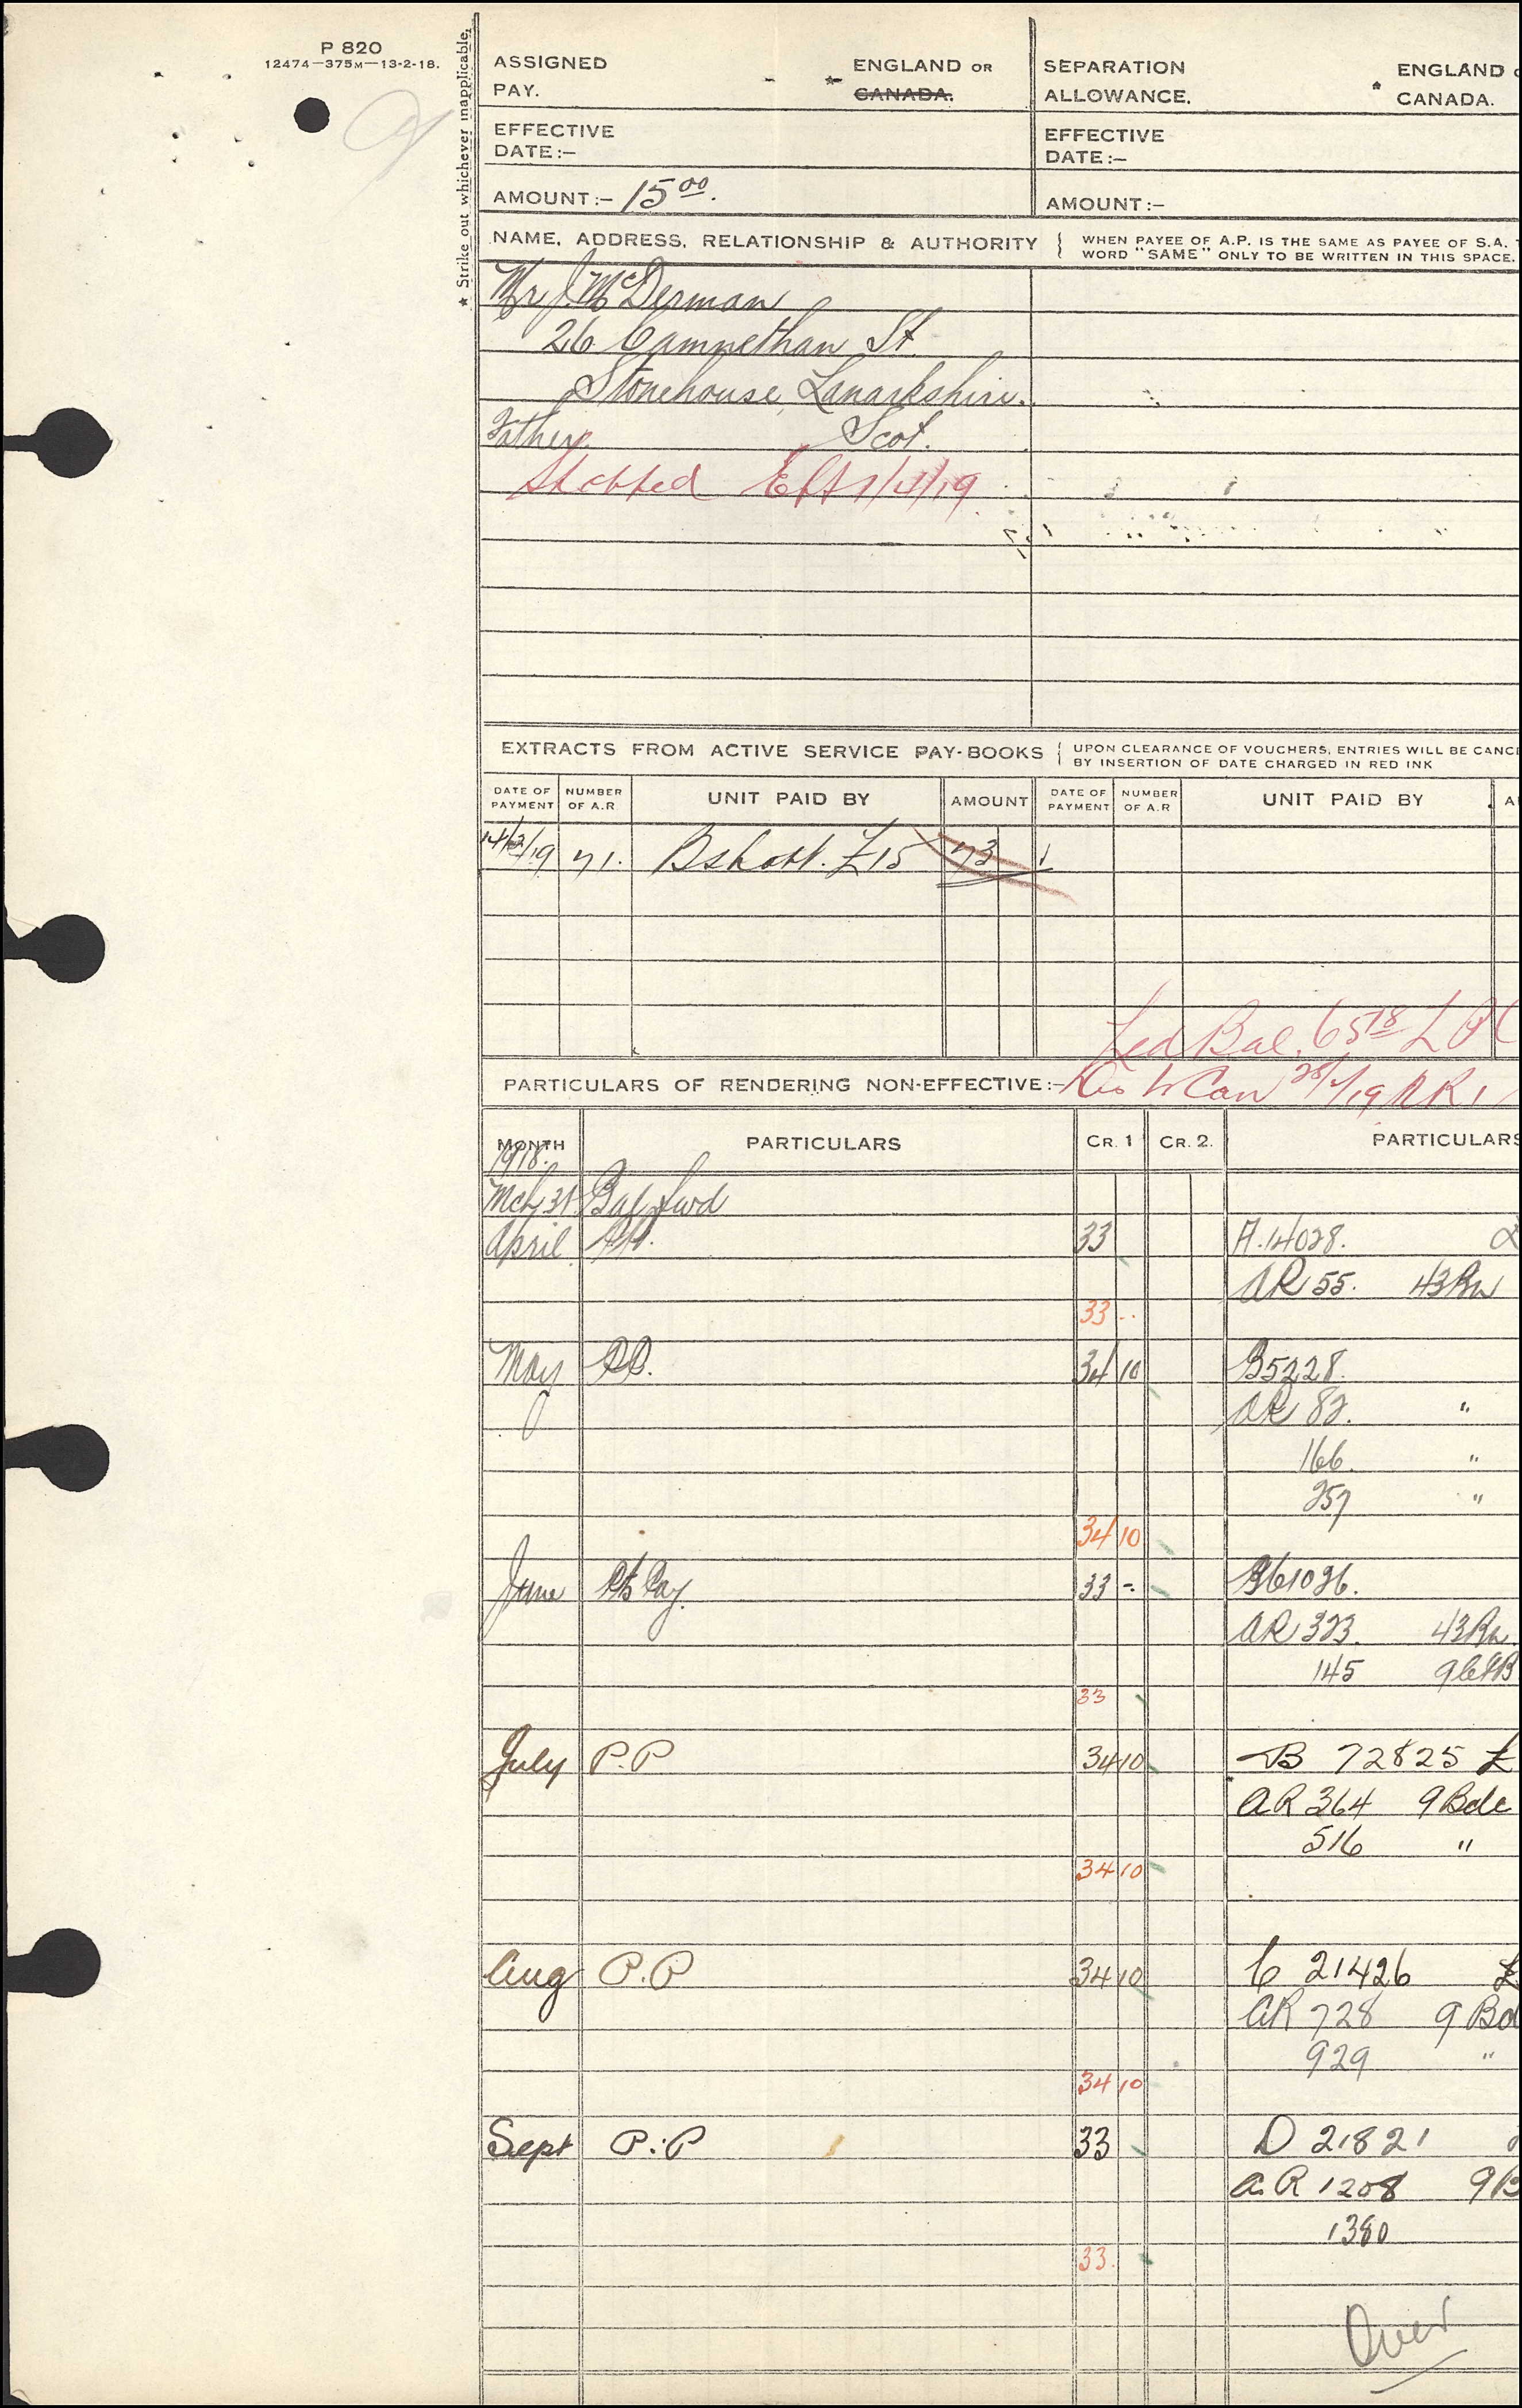 P 820
12474—375M—13-2-18.
* Strike out whichever inapplicable.
ASSIGNED PAY. * ENGLAND OR CANADA.
SEPARATION ALLOWANCE. * ENGLAND CANADA.
EFFECTIVE DATE:—
EFFECTIVE DATE:—
AMOUNT:— 15 00.
AMOUNT:—
NAME, ADDRESS, RELATIONSHIP & AUTHORITY { WHEN PAYEE OF A.P. IS THE SAME AS PAYEE OF S.A.
WORD "SAME" ONLY TO BE WRITTEN IN THIS SPACE.
Mr J. McDerman
26 Camnethan St.
Stonehouse, Lanarkshire.
Father. Scot.
Stopped Eff 1/4/19
EXTRACTS FROM ACTIVE SERVICE PAY-BOOKS { UPON CLEARANCE OF VOUCHERS, ENTRIES WILL BE CANC
BY INSERTION OF DATE CHARGED IN RED INK
DATE OF PAYMENT NUMBER OF A.R UNIT PAID BY AMOUNT DATE OF PAYMENT NUMBER OF A.R UNIT PAID BY
71. Bshott. £15 73
Bal. 65 18
PARTICULARS OF RENDERING NON-EFFECTIVE:— Dis to Can
MONTH PARTICULARS CR. 1 CR. 2. PARTICULARS
1918.
Mch 31 Bal fwd
April 33 A.14028.
AR 55. 43Bn
33 --
May PP. 34 10 B5228.
AR 82. "
166. "
257 "
34 10
June Pay. 33 - B61026.
AR 323. 43Bn
145
33
July P.P 34 10 B 72825 £
AR 364 9 Bde
516 "
34 10
Aug P.P 34 10 C 21426 £
AR 728 9 Bd
929 "
34 10
Sept P.P 33 D 21821
A.R 1208 9B
1380
33.
Over